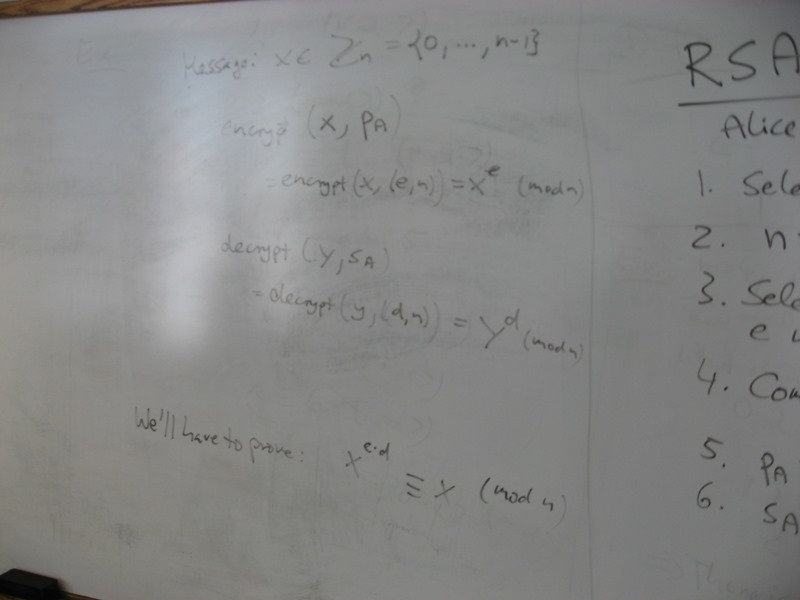 Message: x ∈ ℤn = {0, ..., n-1}
encrypt (x, pA)
= encrypt (x, (e, n)) = x^e (mod n)
decrypt (y, sA)
= decrypt (y, (d, n)) = y^d (mod n)
We'll have to prove: x^e·d ≡ x (mod n)
RSA
Alice
1. Sele
2. n
3. Sele
e
4. Com
5. pA
6. sA